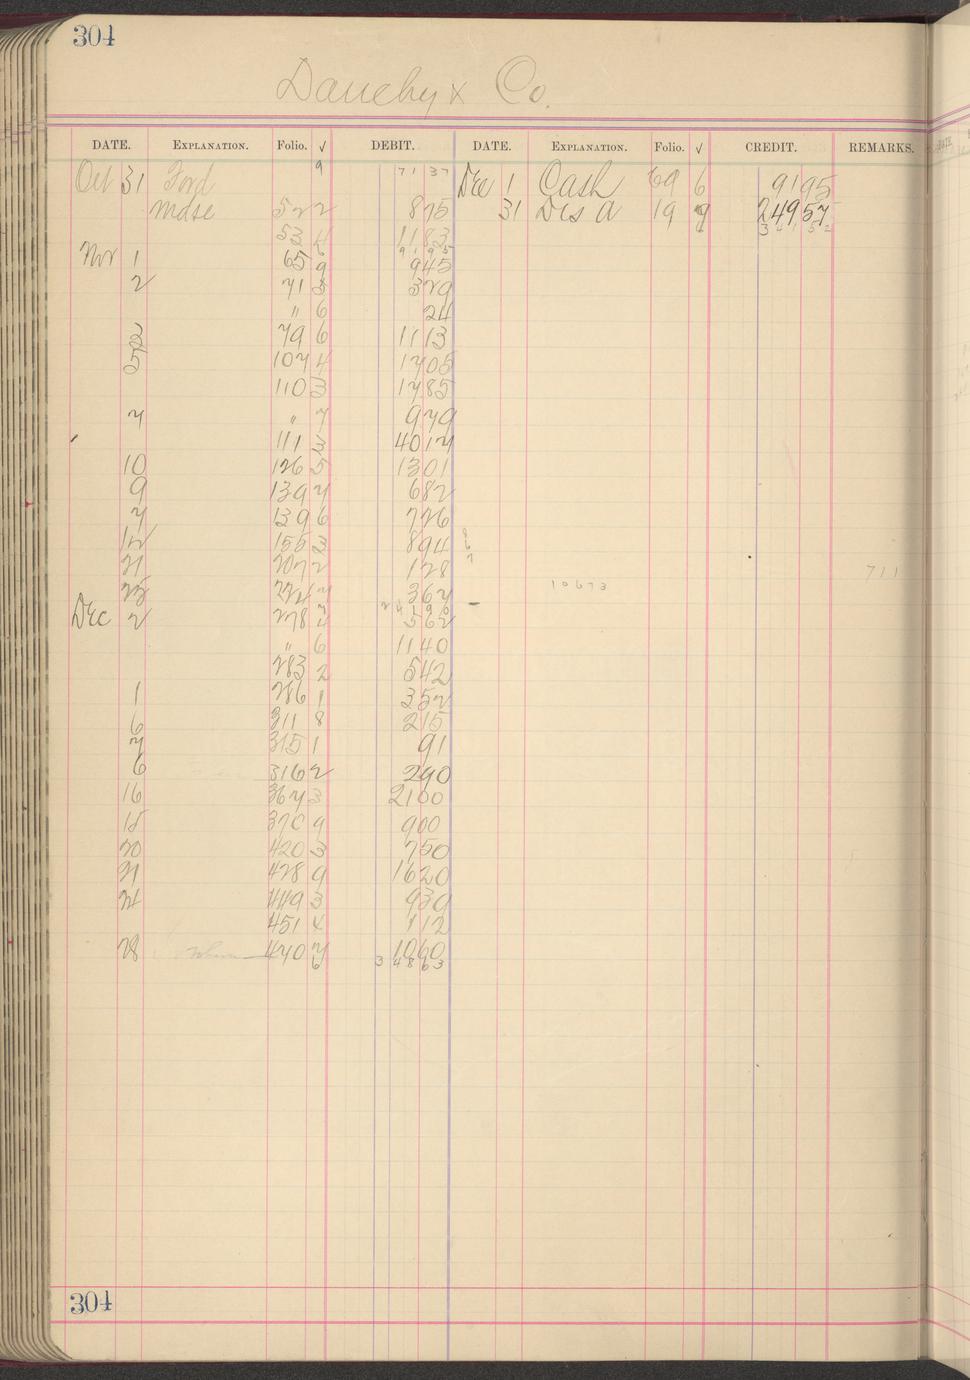 304
Co.
DATE. EXPLANATION. Folio. √ DEBIT. DATE. EXPLANATION. Folio. √ CREDIT. REMARKS.
Oct 31 Ford 9 71 37 Dec 1 Cash 69 6 91 95
Mdse 52 2 8 75 31 Dis a 19 9 249 57
53 4 11 83 341 52
91 95
Nov 1 65 9 9 45
2 71 3 3 29
" 6 24
3 79 6 11 13
5 107 4 17 05
110 3 17 85
7 " 7 9 79
111 3 40 17
10 126 5 13 01
9 139 7 6 82
7 139 6 7 26
12 155 3 8 94
21 207 2 1 28 711
25 224 7 3 67 10673
241 96
Dec 2 278 5 62
" 6 11 40
283 2 5 42
1 286 1 3 52
6 311 8 2 15
7 315 1 91
6 316 2 2 90
16 367 3 21 00
18 370 9 9 00
20 420 3 7 50
21 428 9 16 20
24 449 3 9 39
451 4 1 12
28 470 7 10 60
6 348 63
304